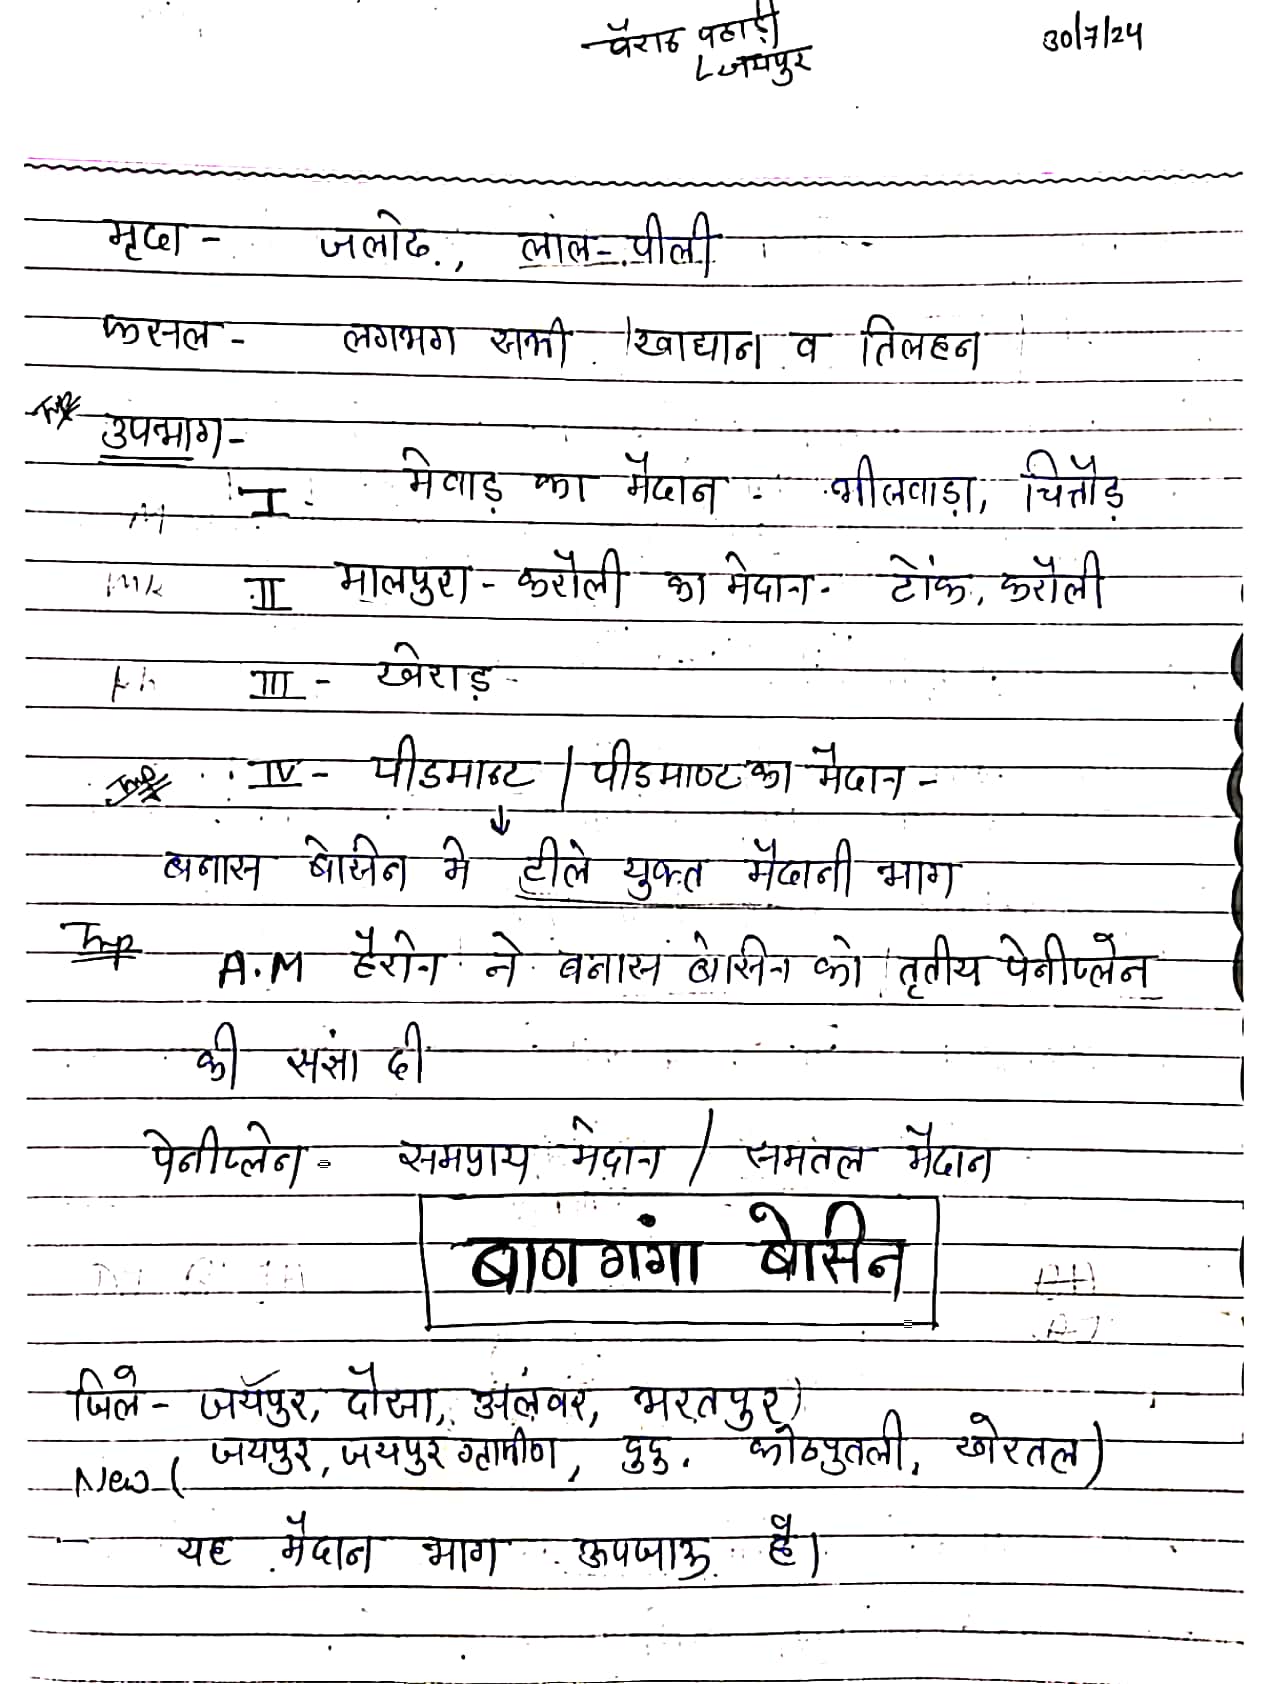 बैराठ पहाड़ी 30/7/24
L जयपुर
मृदा - जलोढ, लाल-पीली
फसल - लगभग सभी खाद्यान व तिलहन
Imp उपभाग -
I - मेवाड़ का मैदान - भीलवाड़ा, चित्तौड़
II मालपुरा - करौली का मैदान - टोंक, करौली
III - खेराड़ -
Imp IV - पीडमान्ट / पीडमाण्ट का मैदान -
↓
बनास बेसिन मे टीले युक्त मैदानी भाग
Imp A.M हैरोन ने बनास बेसिन को तृतीय पेनीप्लेन
की संज्ञा दी
पेनीप्लेन - समप्राय मैदान / समतल मैदान
बाणगंगा बेसिन
जिले - जयपुर, दौसा, अलवर, भरतपुर)
New ( जयपुर, जयपुर ग्रामीण, दुदु, कोठपुतली, खेरतल)
- यह मैदान भाग ऊपजाऊ है।